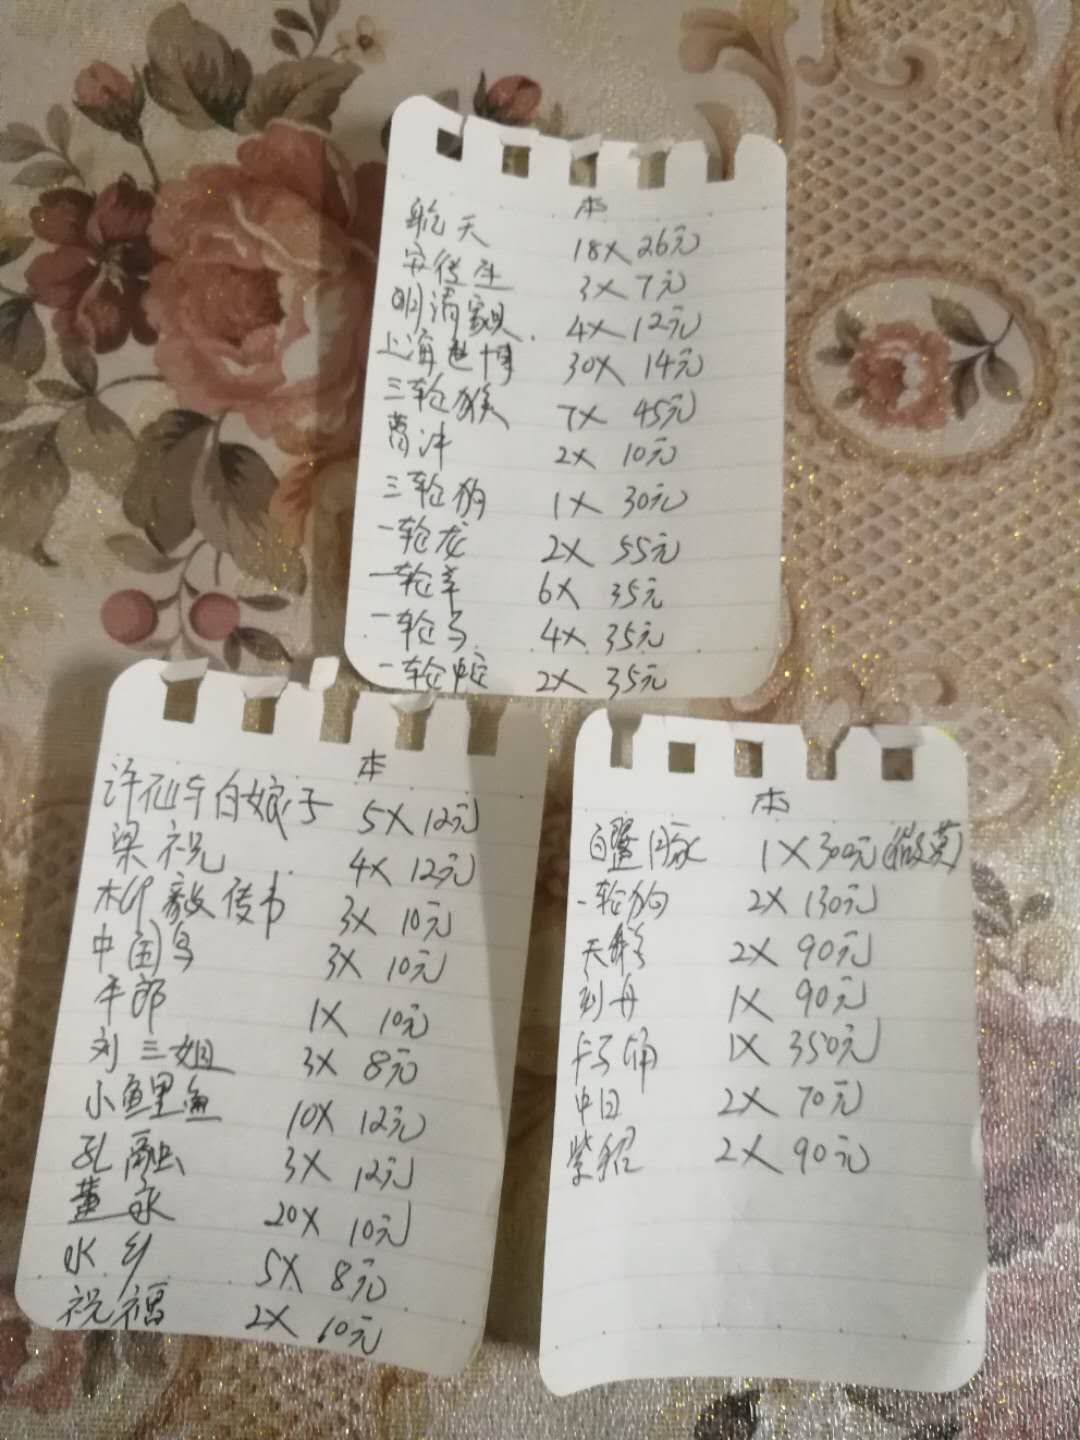 本
航天 18X 26元
安徒生 3X 7元
明清家具 4X 12元
上海世博 30X 14元
三轮猴 7X 45元
曹冲 2X 10元
三轮狗 1X 30元
一轮龙 2X 55元
一轮羊 6X 35元
一轮马 4X 35元
一轮蛇 2X 35元
本
许仙与白娘子 5X 12元
梁祝 4X 12元
柳毅传书 3X 10元
中国鸟 3X 10元
牛郎 1X 10元
刘三姐 3X 8元
小鲤鱼 10X 12元
孔融 3X 12元
董永 20X 10元
水乡 5X 8元
祝福 2X 10元
本
白鳘豚 1X 300元(微黄)
一轮狗 2X 130元
天鹅 2X 90元
牡丹 1X 90元
1X 350元
中日 2X 70元
紫貂 2X 90元